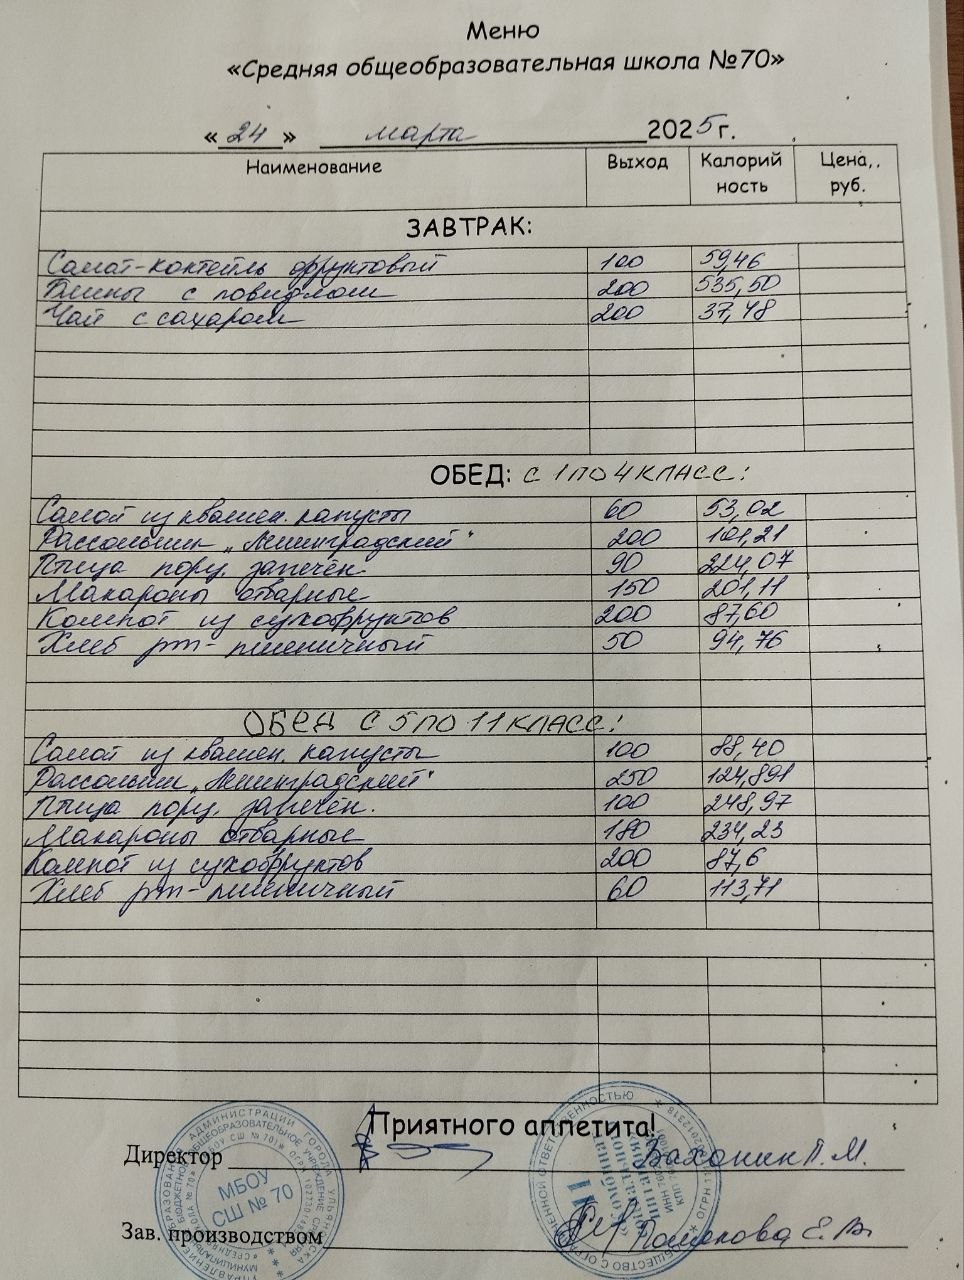 Меню
«Средняя общеобразовательная школа №70»
« 24 » марта 2025 г.
Наименование Выход Калорийность Цена, руб.
ЗАВТРАК:
Салат-коктейль фруктовый 100 59,46
Блины с повидлом 200 535,50
Чай с сахаром 200 37,48
ОБЕД: С 1 ПО 4 КЛАСС:
Салат из квашен. капусты 60 53,02
Рассольник „Ленинградский" 200 101,21
Птица порц. запечён. 90 224,07
Макароны отварные 150 201,11
Компот из сухофруктов 200 87,60
Хлеб рж-пшеничный 50 94,76
ОБЕД С 5 ПО 11 КЛАСС:
Салат из квашен. капусты 100 88,40
Рассольник „Ленинградский" 250 124,891
Птица порц. запечён. 100 248,97
Макароны отварные 180 234,23
Компот из сухофруктов 200 87,6
Хлеб рж-пшеничный 60 113,71
Приятного аппетита!
Директор
Зав. производством
МБОУ
СШ № 70